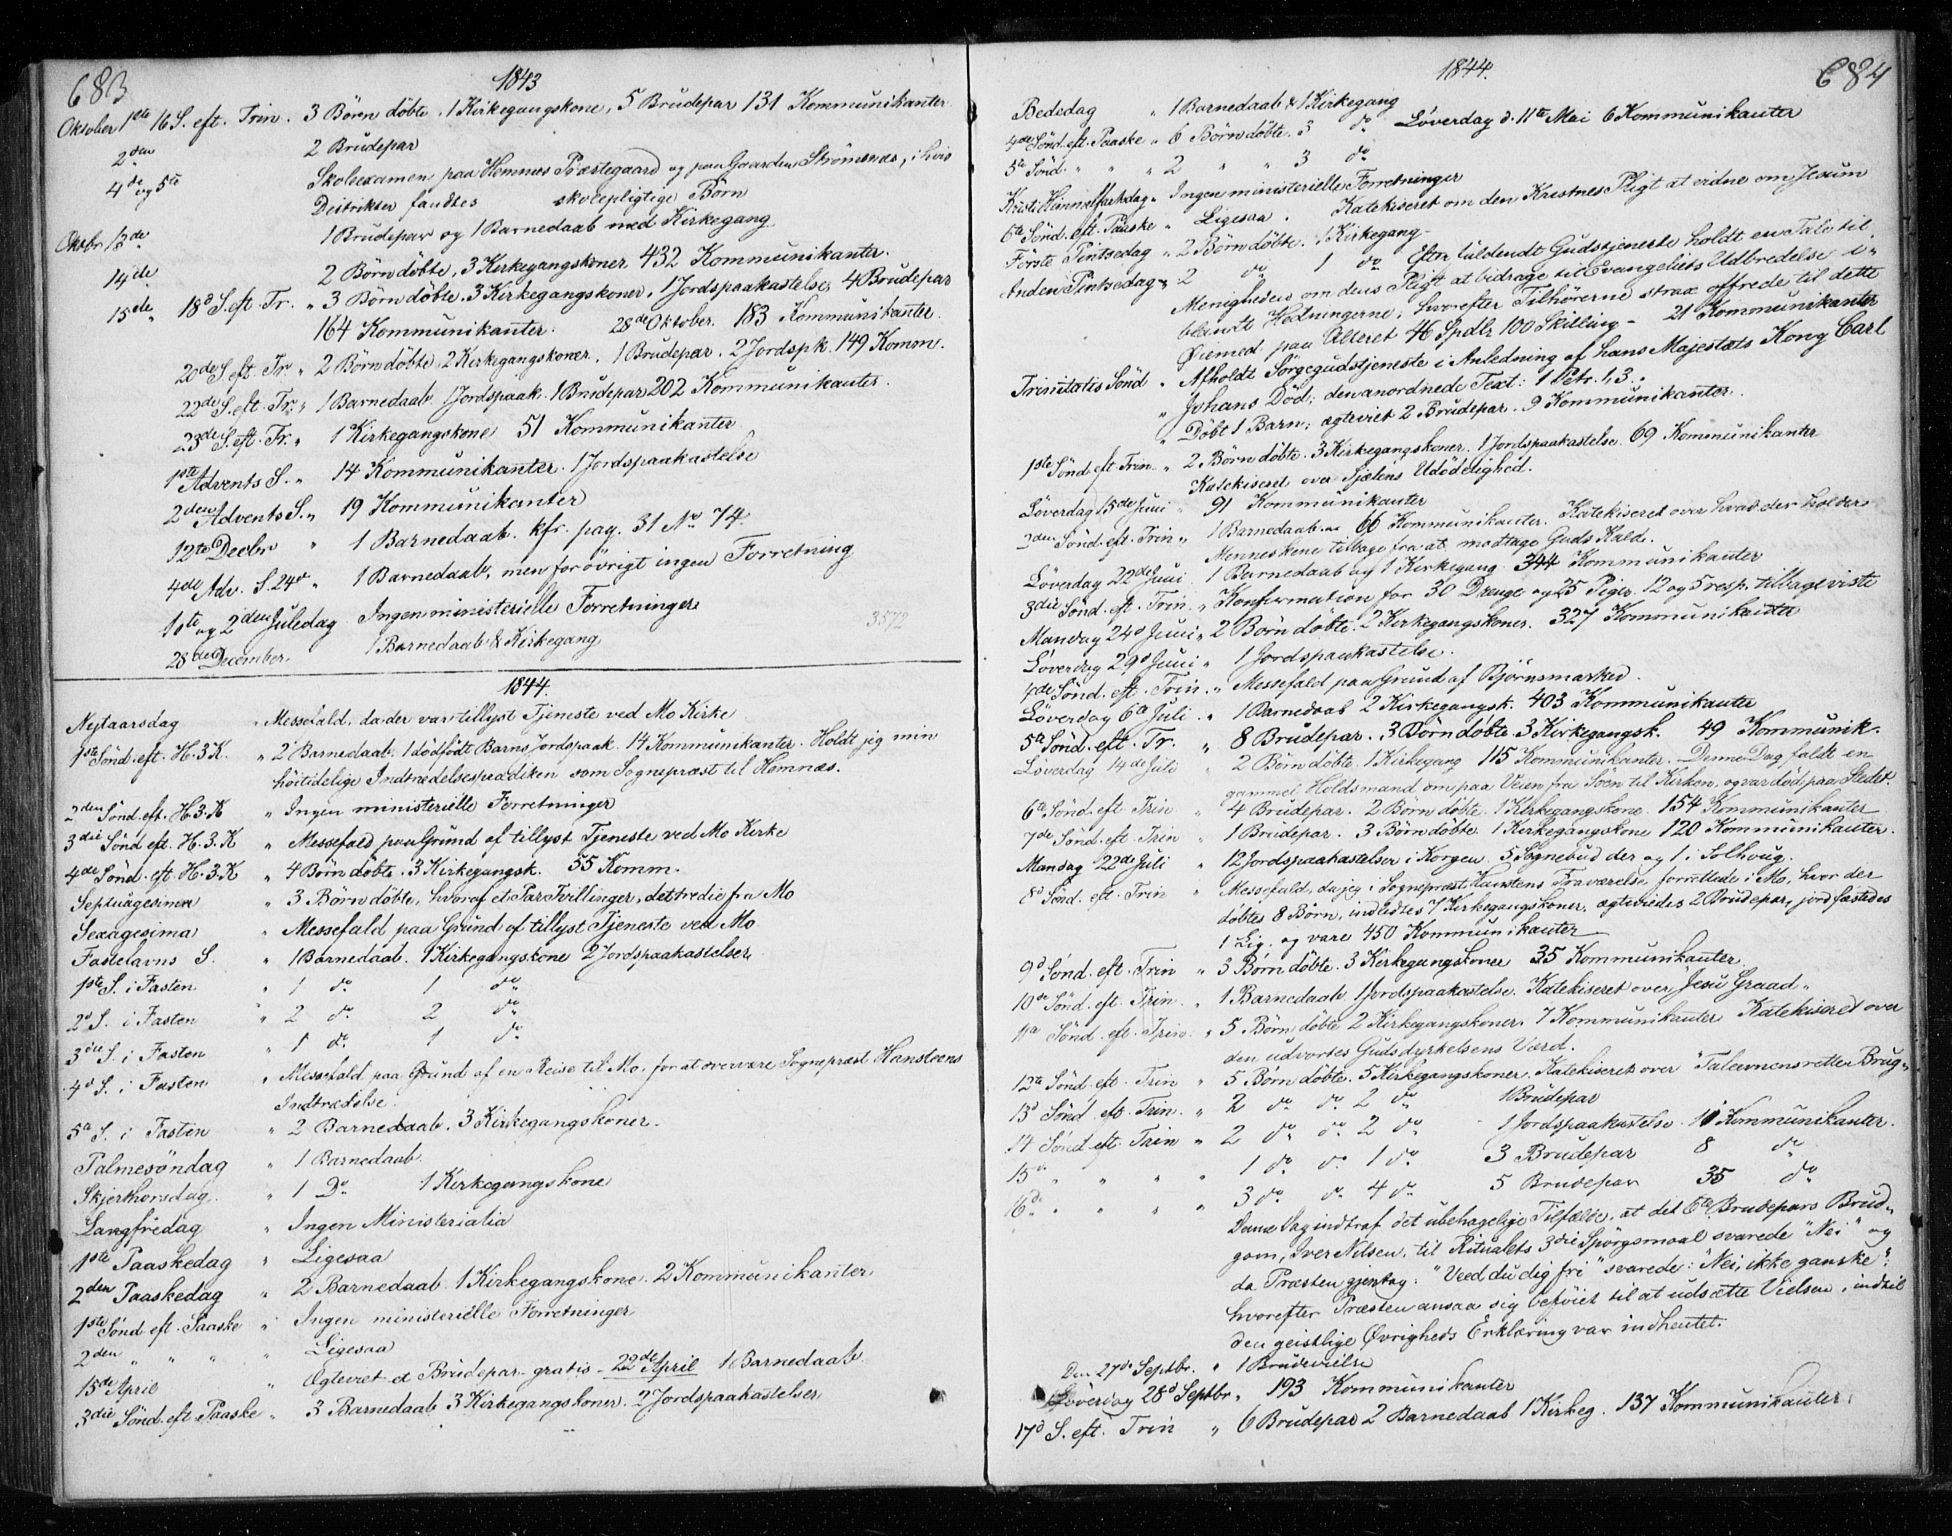 683
1843
Oktober 1ste 16 S. eft. Trin. 3 Börn döbte, 1 Kirkegangskone, 5 Brudepar 131 Kommunikanter
2den 2 Brudepar
4de og 5te Skoleexamen paa Hemnes Præstegaard og paa Gaarden Strömsnæs, i hvis
Distrikter fandtes skolepligtige Börn
Oktbr 13de 1 Brudepar og 1 Barnedaab med Kirkegang
14de 2 Börn döbte, 3 Kirkegangskoner, 432 Kommunikanter.
15de „ 18d S. eft. Tr. „ 3 Börn döbte. 3 Kirkegangskoner, 1 Jordspaakastelse, 4 Brudepar
164 Kommunikanter. 28de Oktober. 183 Kommunikanter.
20de S. eft. Tr. „ 2 Börn döbte, 2 Kirkegangskoner. 1 Brudepar. 2 Jordspk. 149 Komm.
22de S. eft. Tr. „ 1 Barnedaab 1 Jordspaak. 1 Brudepar 202 Kommunikanter.
23de S. eft. Tr. „ 1 Kirkegangskone 51 Kommunikanter
1ste Advents S. „ 14 Kommunikanter. 1 Jordspaakastelse
2den Advents S. „ 19 Kommunikanter
12te Decbr „ 1 Barnedaab. kfr. pag. 31 No 74.
4de Adv. S. 24d „ 1 Barnedaab, men forövrigt ingen Forretning
1ste og 2den Juledag Ingen ministerielle Forretninger
28de December. 1 Barnedaab & Kirkegang
3572
1844.
Nejtaarsdag „ Messefald, da der var tillyst Tjeneste ved Mo Kirke
1ste Sönd. eft. H. 3. K. „ 2 Barnedaab. 1 dödfödt Barns Jordspaak. 14 Kommunikanter. Holdt jeg min
höitidelige Indtrædelsesprædiken som Sognepræst til Hemnæs.
2den Sönd. eft. H. 3. K „ Ingen ministerielle Forretninger
3die Sönd eft. H. 3. K „ Messefald paa Grund af tillyst Tjeneste ved Mo Kirke
4de Sönd. eft. H. 3. K „ 4 Börn döbte. 3 Kirkegangsk. 55 Komm.
Septuagesima „ 3 Börn döbte, hvoraf et Par Tvillinger, det tredie fra Mo
Sexagesima „ Messefald paa Grund af tillyst Tjeneste ved Mo
Fastelavns S. „ 1 Barnedaab. 1 Kirkegangskone 2 Jordspaakastelser
1ste S. i Fasten „ 1 do 1 do
2d S. i Fasten „ 2 do 2 do
3die S. i Fasten „ 1 do 1 do
4d S. i Fasten „ Messefald paa Grund af en Reise til Mo, for at overvære Sognepræst Hansteens
Indtrædelse.
5te S. i Fasten „ 2 Barnedaab. 3 Kirkegangskoner.
Palmesöndag „ 1 Barnedaab.
Skjerthorsdag. „ 1 Do 1 Kirkegangskone
Langfredag „ Ingen Ministerialia
1ste Paaskedag „ Ligesaa
2den Paaskedag „ 2 Barnedaab. 1 Kirkegangskone. 2 Kommunikanter
1ste Sönd eft. Paaske „ Ingen ministerielle Forretninger
2den „ „ „ „ Ligesaa
15de April „ Ægteviet et Brudepar gratis - 22de April 1 Barnedaab
3die Sönd. eft. Paaske „ 3 Barnedaab 3 Kirkegangskoner. 2 Jordspaakastelser
684
1844.
Bededag „ 1 Barnedaab & 1 Kirkegang
4de Sönd. eft. Paaske „ 6 Börn döbte. 3 do Löverdag d. 11te Mai 6 Kommunikanter
5te Sönd. „ „ „ 2 „ „ 3 do
Kristi Himmelfartsdag „ Ingen ministerielle Forretninger
6te Sönd. eft. Paaske „ Ligesaa. Katekiseret om den Kristnes Pligt at vidne om Jesum
Förste Pintsedag „ 2 Börn döbte. 1 Kirkegang
Anden Pintsedag „ 2 do 1 do Efter fuldendt Gudstjeneste holdt en Tale til
Menigheden om dens Pligt at bidrage til Evangeliets Udbredelse i-
blandt Hedningerne; hvorefter Tilhörerne strax offrede til dette
Öiemed paa Alteret 46 Spdlr 100 Skilling - 21 Kommunikanter
Trinitatis Sönd „ Afholdt Sörgegudstjeneste i Anledning af hans Majestæts Kong Carl
„ Johans Död; den anordnede Text: 1 Petr. 1, 3.
„ Döbt 1 Barn; ægteviet 2 Brudepar. 9 Kommunikanter.
1ste Sönd. eft. Trin „ 2 Börn döbte. 3 Kirkegangskoner. 1 Jordspaakastelse. 69 Kommunikanter
Katekiseret over Sjælens Udödelighed.
Löverdag 15de Juni „ 91 Kommunikanter
2den Sönd. eft. Trin „ 1 Barnedaab. 66 Kommunikanter. Katekiseret over hvad der holder
Menneskene tilbage fra at modtage Guds Kald.
Löverdag 22de Juni „ 1 Barnedaab og 1 Kirkegang. 344 Kommunikanter
3die Sönd. eft. Trin „ Konfirmation for 30 Drenge og 25 Piger. 12 og 5 resp. tilbageviste
Mandag 24d Juni „ 2 Börn döbte. 2 Kirkegangskoner. 327 Kommunikanter
Löverdag 29d Juni „ 1 Jordspaakastelse.
4de Sönd. eft. Trin. „ Messefald paa Grund af Björnsmarked.
Löverdag 6te Juli. „ 1 Barnedaab 2 Kirkegangsk. 403 Kommunikanter
5te Sönd. eft. Tr. „ 8 Brudepar. 3 Börn döbte. 3 Kirkegangsk. 49 Kommunik.
Löverdag 14de Juli „ 2 Börn döbte. 1 Kirkegang 115 Kommunikanter. Denne Dag faldt en
gammel Holdsmand om paa Veien fra Söen til Kirken, og var död paa Stedet.
6te Sönd. eft Trin „ 4 Brudepar. 2 Börn döbte. 1 Kirkegangskone. 154 Kommunikanter
7de Sönd. eft. Trin „ 1 Brudepar. 3 Börn döbte. 1 Kirkegangskone 120 Kommunikanter.
Mandag 22de Juli „ 12 Jordspaakastelser i Korgen. 5 Sognebud der og 1 i Solhoug.
8d Sönd. eft. Trin „ Messefald, da jeg i Sognepræst Hansteens Fraværelse forrettede i Mo, hvor der
döbtes 8 Börn, indledtes 7 Kirkegangskoner, ægteviedes 2 Brudepar, jordfæstedes
1 Lig. og vare 450 Kommunikanter
9d Sönd. eft. Trin „ 3 Börn döbte. 3 Kirkegangskoner 35 Kommunikanter.
10de Sönd. eft. Trin. „ 1 Barnedaab. 1 Jordspaakastelse. Katekiseret over „Jesu Graad„
11te Sönd. eft. Trin. „ 5 Börn döbte 2 Kirkegangskoner. 7 Kommunikanter Katekiseret over
den udvortes Gudsdyrkelsens Værd.
12te Sönd. eft. Trin „ 5 Börn döbte. 5 Kirkegangskoner. Katekiseret over "Taleevnens rette Brug„
13d Sönd. eft. Trin. „ 2 do do 2 do 1 Brudepar
14 Sönd eft. Trin „ 2 do do 2 do 1 Jordspaakastelse. 10 Kommunikanter.
15de „ „ „ „ 1 do do 1 do 3 Brudepar 8 do
16de „ „ „ „ 3 do do 4 do 5 Brudepar 35 do
Denne Dag indtraf det ubehagelige Tilfælde, at det 6te Brudepars Brud-
gom, Iver Nilsen, til Ritualets 3die Spörgsmaal svarede "Nei" og
da Præsten gjentog: "Veed du dig fri" svarede: "Nei, ikke ganske":
hvorefter Præsten ansaa sig beföiet til at udsætte Vielsen, indtil
den geistlige Øvrigheds Erklæring var indhentet.
Den 27de Septbr. „ 1 Brudevielse
Löverdag 28d Septbr „ 193 Kommunikanter
17d S. eft. Trin „ 6 Brudepar 2 Barnedaab 1 Kirkeg. 137 Kommunikanter